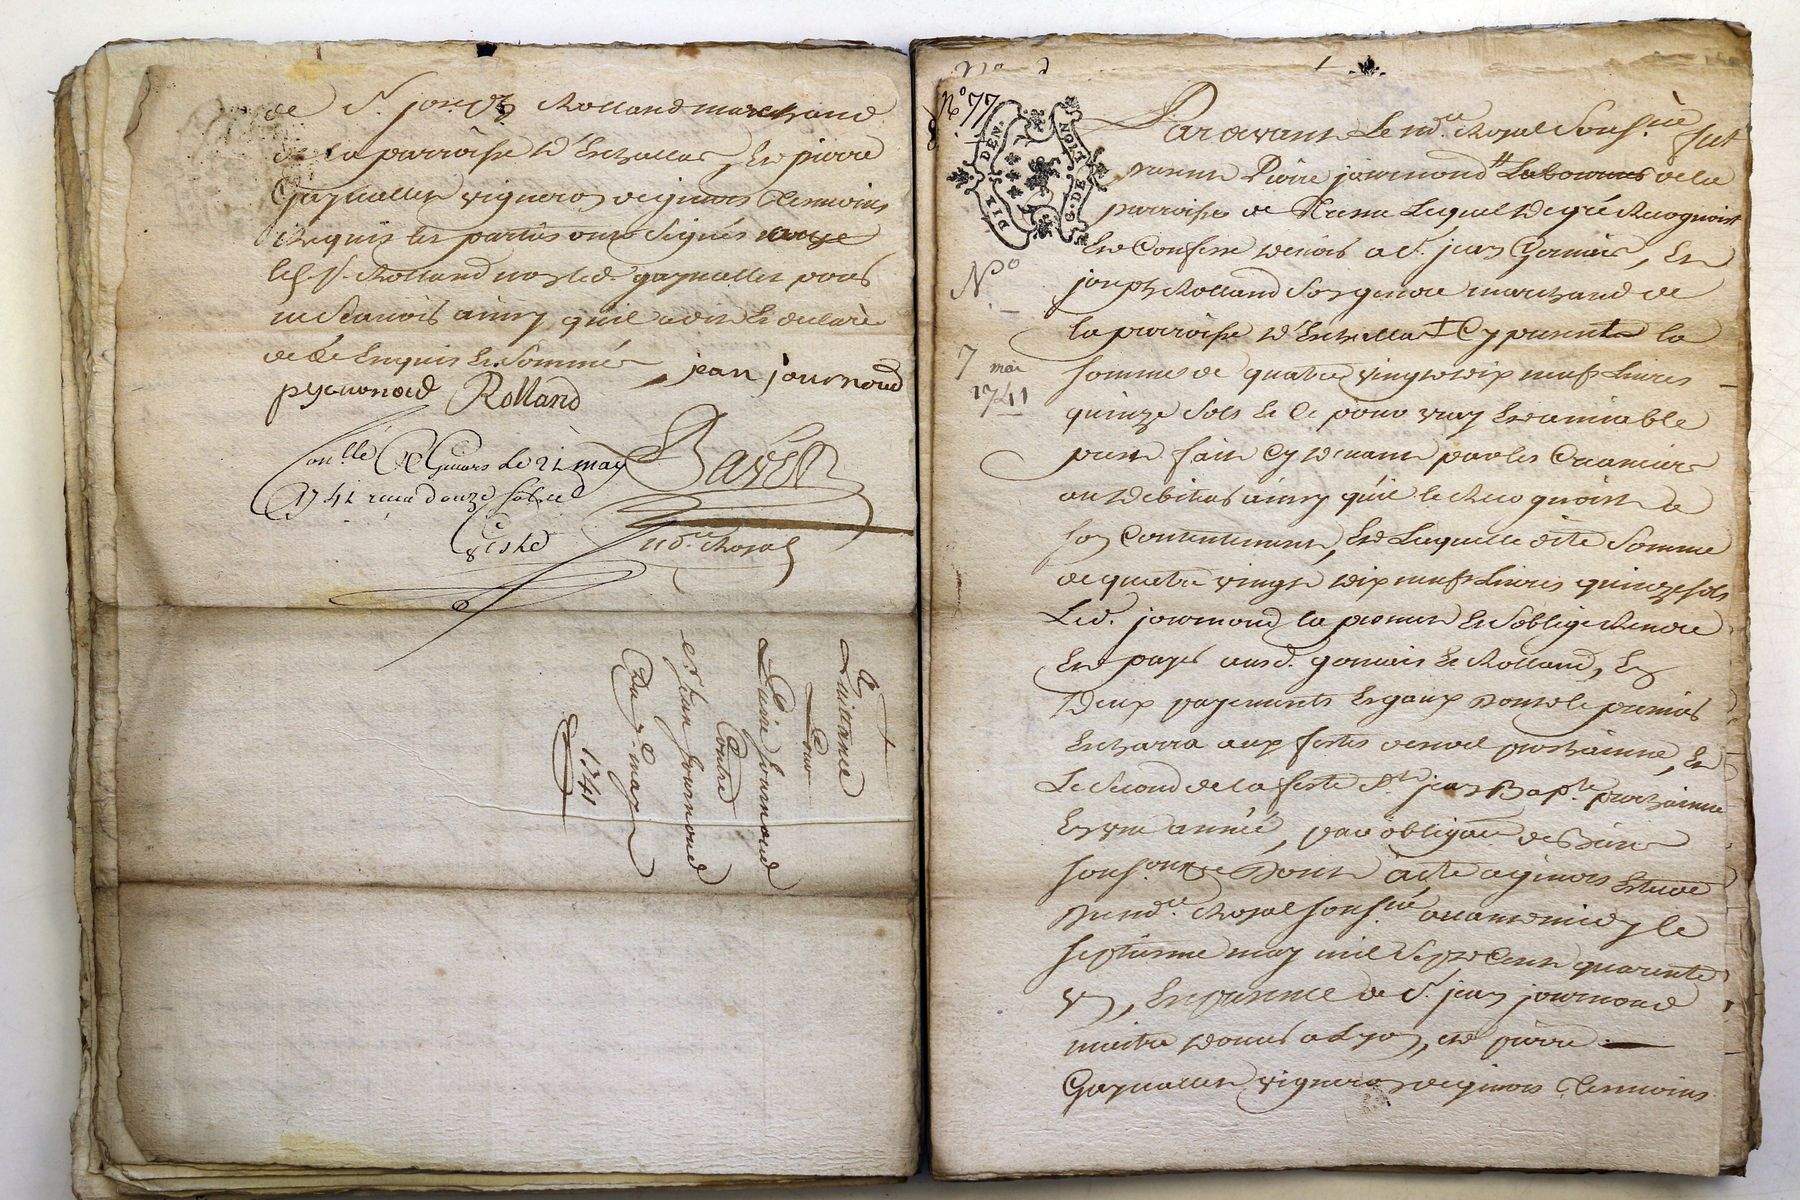 de Sr. joseph Rolland marchand
de la parroisse d'Echallas, et pierre
vigneron de givors temoins
requis les parties ont signés
led. sr. Rolland non led. pour
ne scavoir ainsy quil a dit et declaré
de ce enquis et sommé
jean journoud
pjournoud Rolland
Conllé A Givors le 21 may
1741 receu douze sols
Bavet
nore. Royal
Quittance
Pour
Pierre Journoud
Contre
sr. Jean Journoud
Du 7e. may
1741
No 77
DIX DEN.
G. DE LYON
No
7 mai
1741
Par devant le nore. Royal soussigné fut
present Pierre journoud Laboureur de la
parroisse de lequel de gré Recognoit
et Confesse devoir a sr. jean et
joseph Rolland son gendre marchand de
la parroisse d'Echallas Cy present la
somme de quatre vingt dix neuf Livres
quinze sols et ce pour vray et amiable
prest fait Cy devant par les Creanciers
au debiteur ainsy quil le Recognoit a
son Contentement, et Laquelle dite somme
de quatre vingt dix neuf Livres quinze sols
Led. journoud la promet et s'oblige Rendre
et payer ausd. et Rolland, En
Deux payements Egaux dont le premier
Echerra aux festes de noel prochaine, et
Le second de la feste St. jean Bapte. prochaine
En une année, par obligaon. de Biens
dont acte a givors Etude
du nore. Royal soussigné avant midy le
septieme may mil sept Cent quarente
un, En presence de sr. jean journoud
maitre a Lyon, et pierre
vigneron de givors temoins